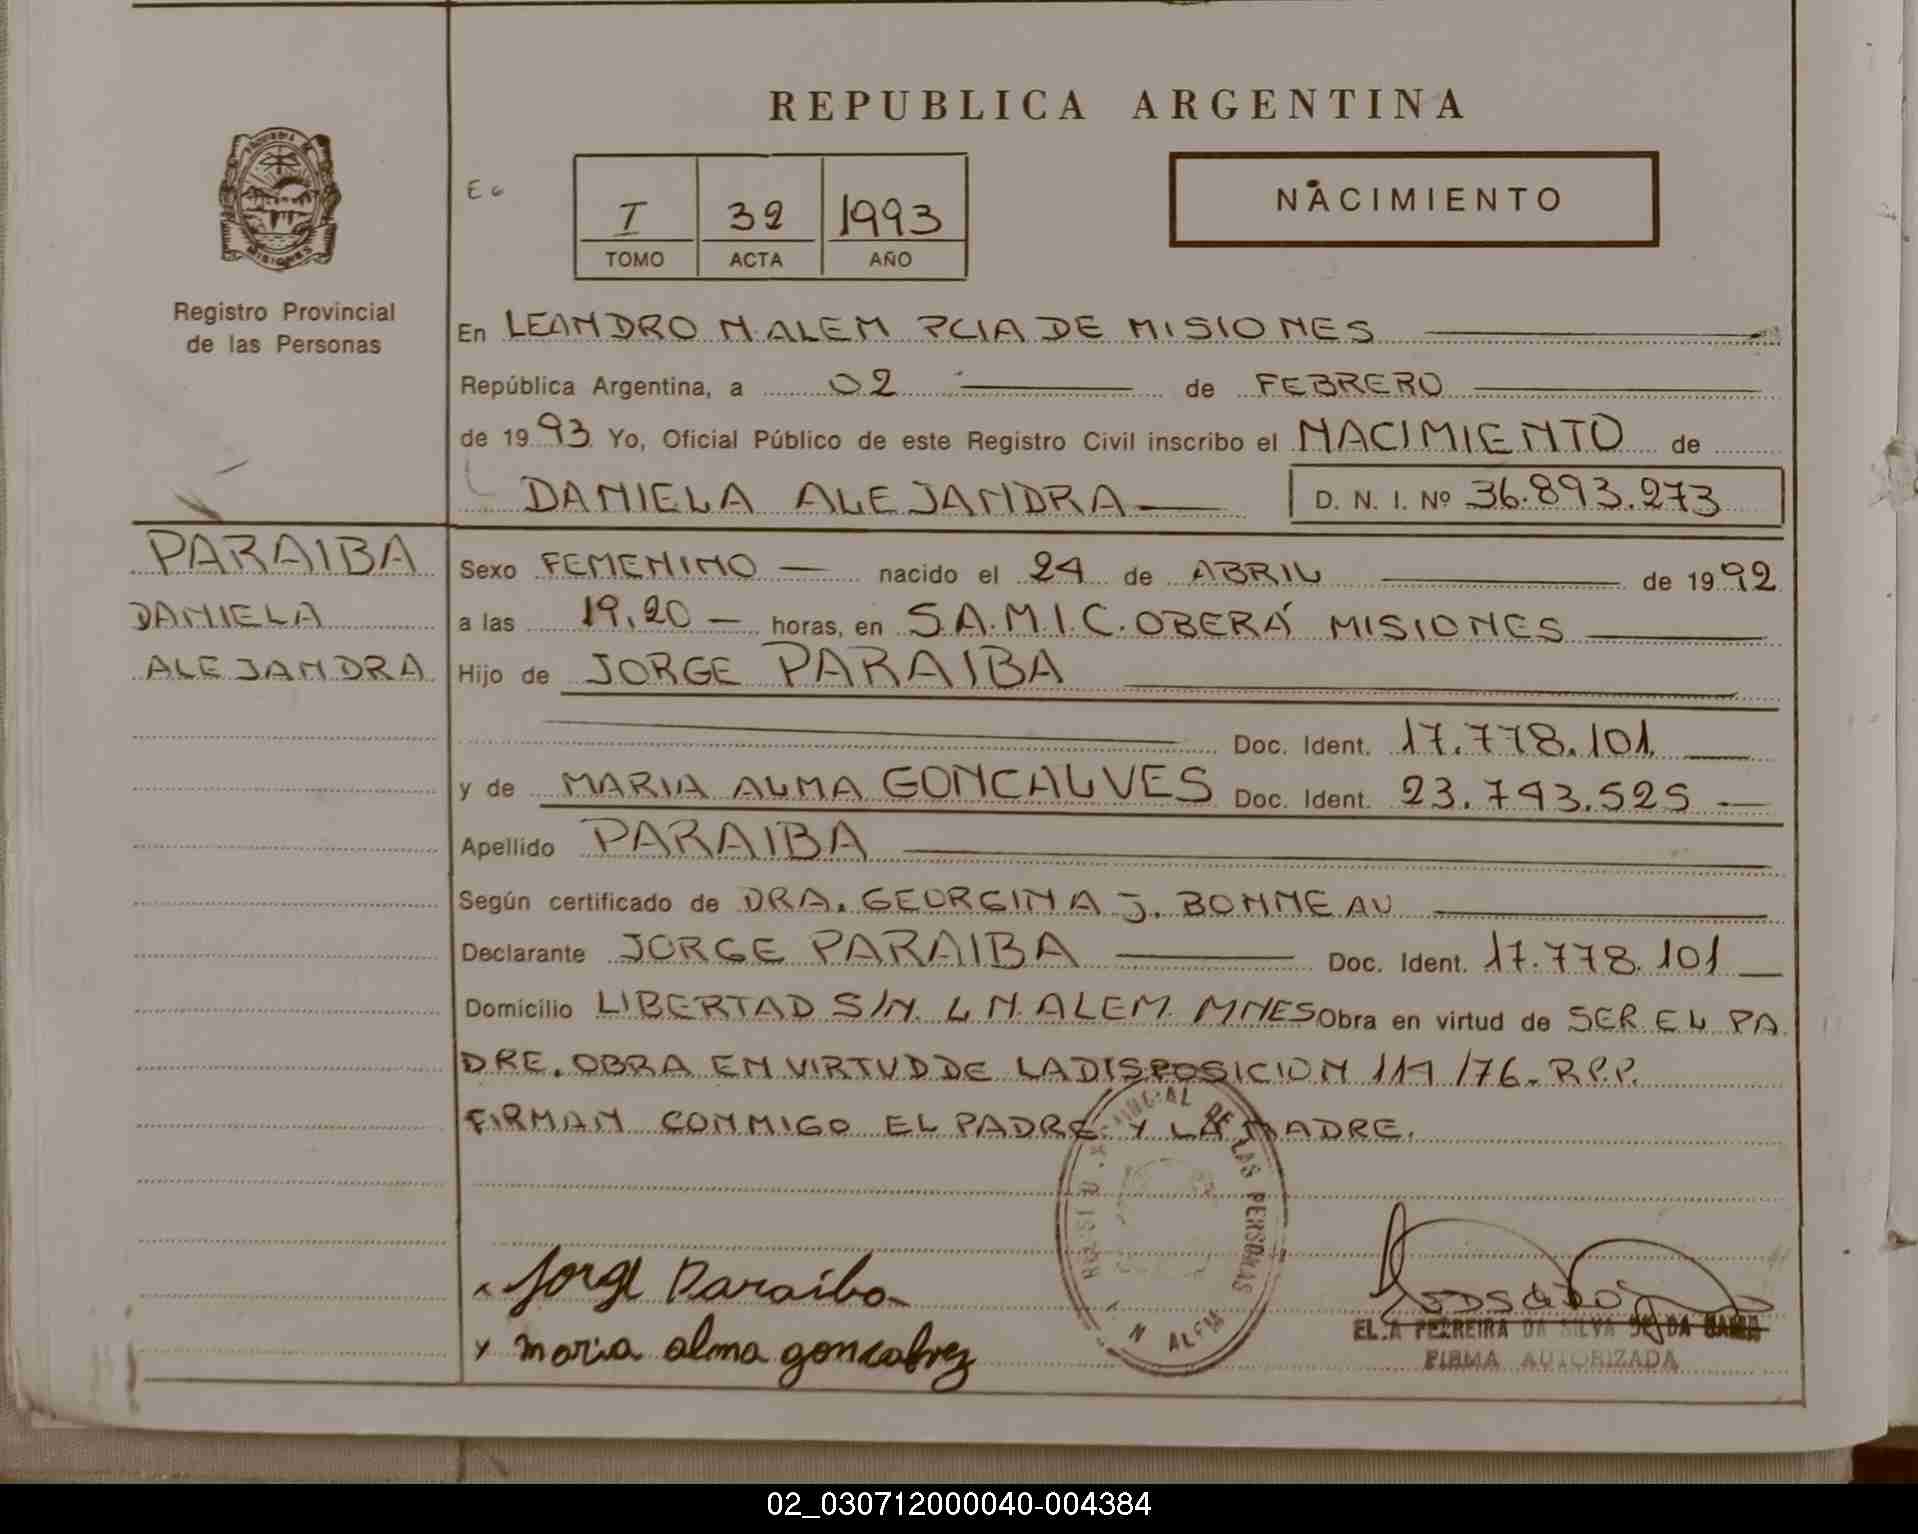 REPUBLICA ARGENTINA
I 32 1993
TOMO ACTA AÑO
NACIMIENTO
MISIONES
Registro Provincial
de las Personas
En LEANDRO N. ALEM PCIA DE MISIONES
República Argentina, a 02 de FEBRERO
de 1993 Yo, Oficial Público de este Registro Civil inscribo el NACIMIENTO de
DANIELA ALEJANDRA D. N. I. Nº 36.893.273
PARAIBA
DANIELA
ALEJANDRA
Sexo FEMENINO nacido el 24 de ABRIL de 1992
a las 19,20 horas, en S.A.M.I.C. OBERÁ MISIONES
Hijo de JORGE PARAIBA
Doc. Ident. 17.778.101
y de MARIA ALMA GONCALVES Doc. Ident. 23.743.525
Apellido PARAIBA
Según certificado de DRA. GEORGINA J. BONNEAU
Declarante JORGE PARAIBA Doc. Ident. 17.778.101
Domicilio LIBERTAD S/N. L N. ALEM. MNES Obra en virtud de SER EL PA
DRE. OBRA EN VIRTUD DE LA DISPOSICION 114/76. R.P.P.
FIRMAN CONMIGO EL PADRE Y LA MADRE.
DE LAS PERSONAS
N ALEM
x Jorge Paraiba
x maria alma goncalvez
FERREIRA DA SILVA
FIRMA AUTORIZADA
02_030712000040-004384